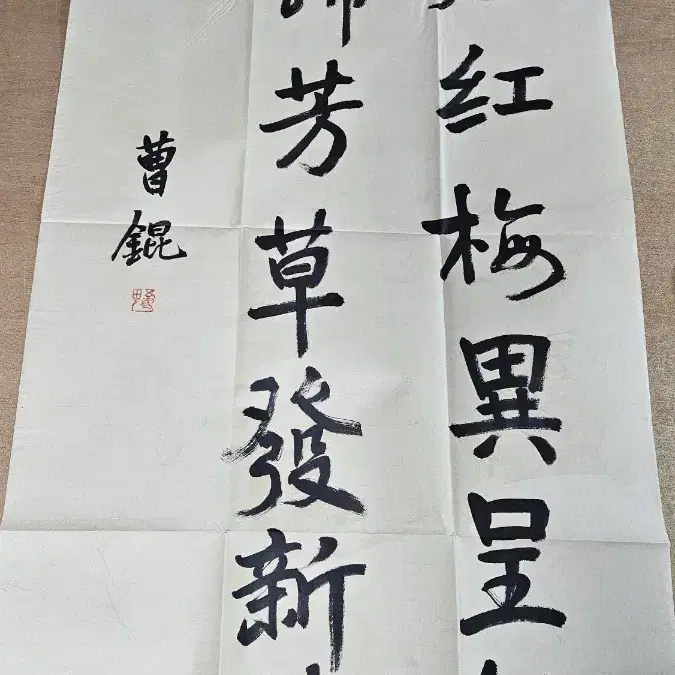 红梅異呈
芳草發新
曹錕